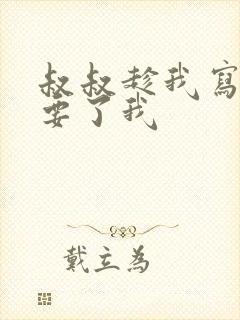 叔叔趁我寫
要了我
戴立為